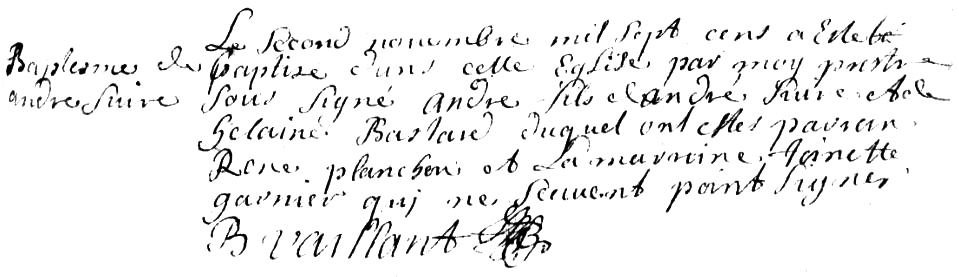 Baptesme de
andre Suire
Le second novembre mil sept cens a Este
baptise dans cette Eglise par moy prestre
sous signé andre fils dandré Suire et de
helaine Bastard duquel ont estes parain
Rene planchon et La maraine Toinette
garnier qui ne scauent point signer
B vaillant